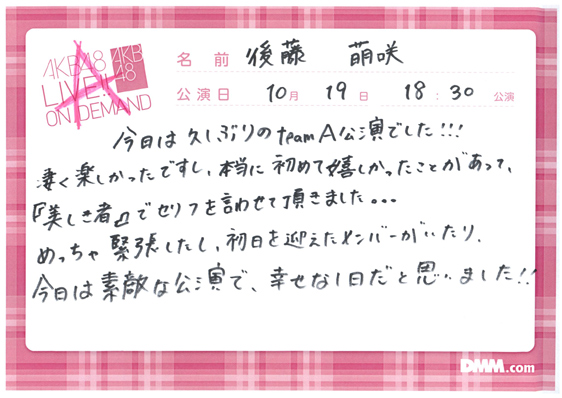 AKB48
LIVE!!
ON DEMAND
AKB
48
名前 後藤 萌咲
公演日 10月 19日 18:30 公演
今日は久しぶりのteamA公演でした!!!
凄く楽しかったですし、本当に初めて嬉しかったことがあって、
『美しき者』でセリフを言わせて頂きました...
めっちゃ緊張したし、初日を迎えたメンバーがいたり、
今日は素敵な公演で、幸せな1日だと思いました!!
DMM.com